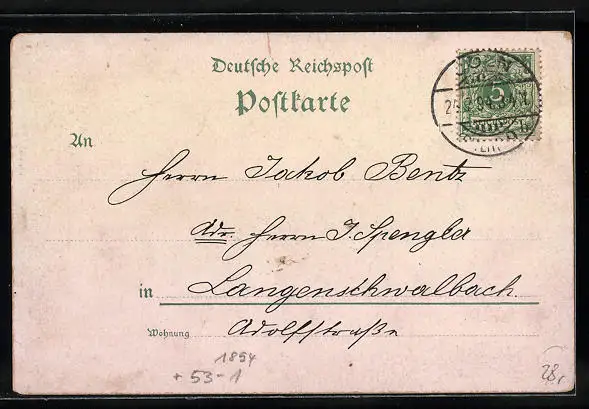 Deutsche Reichspost
Postkarte
An
Herrn Jakob Bentz
Adr. Herrn J. Spengler
in Langenschwalbach
Wohnung Adolfstraße
1894
+ 53-1
28,
5